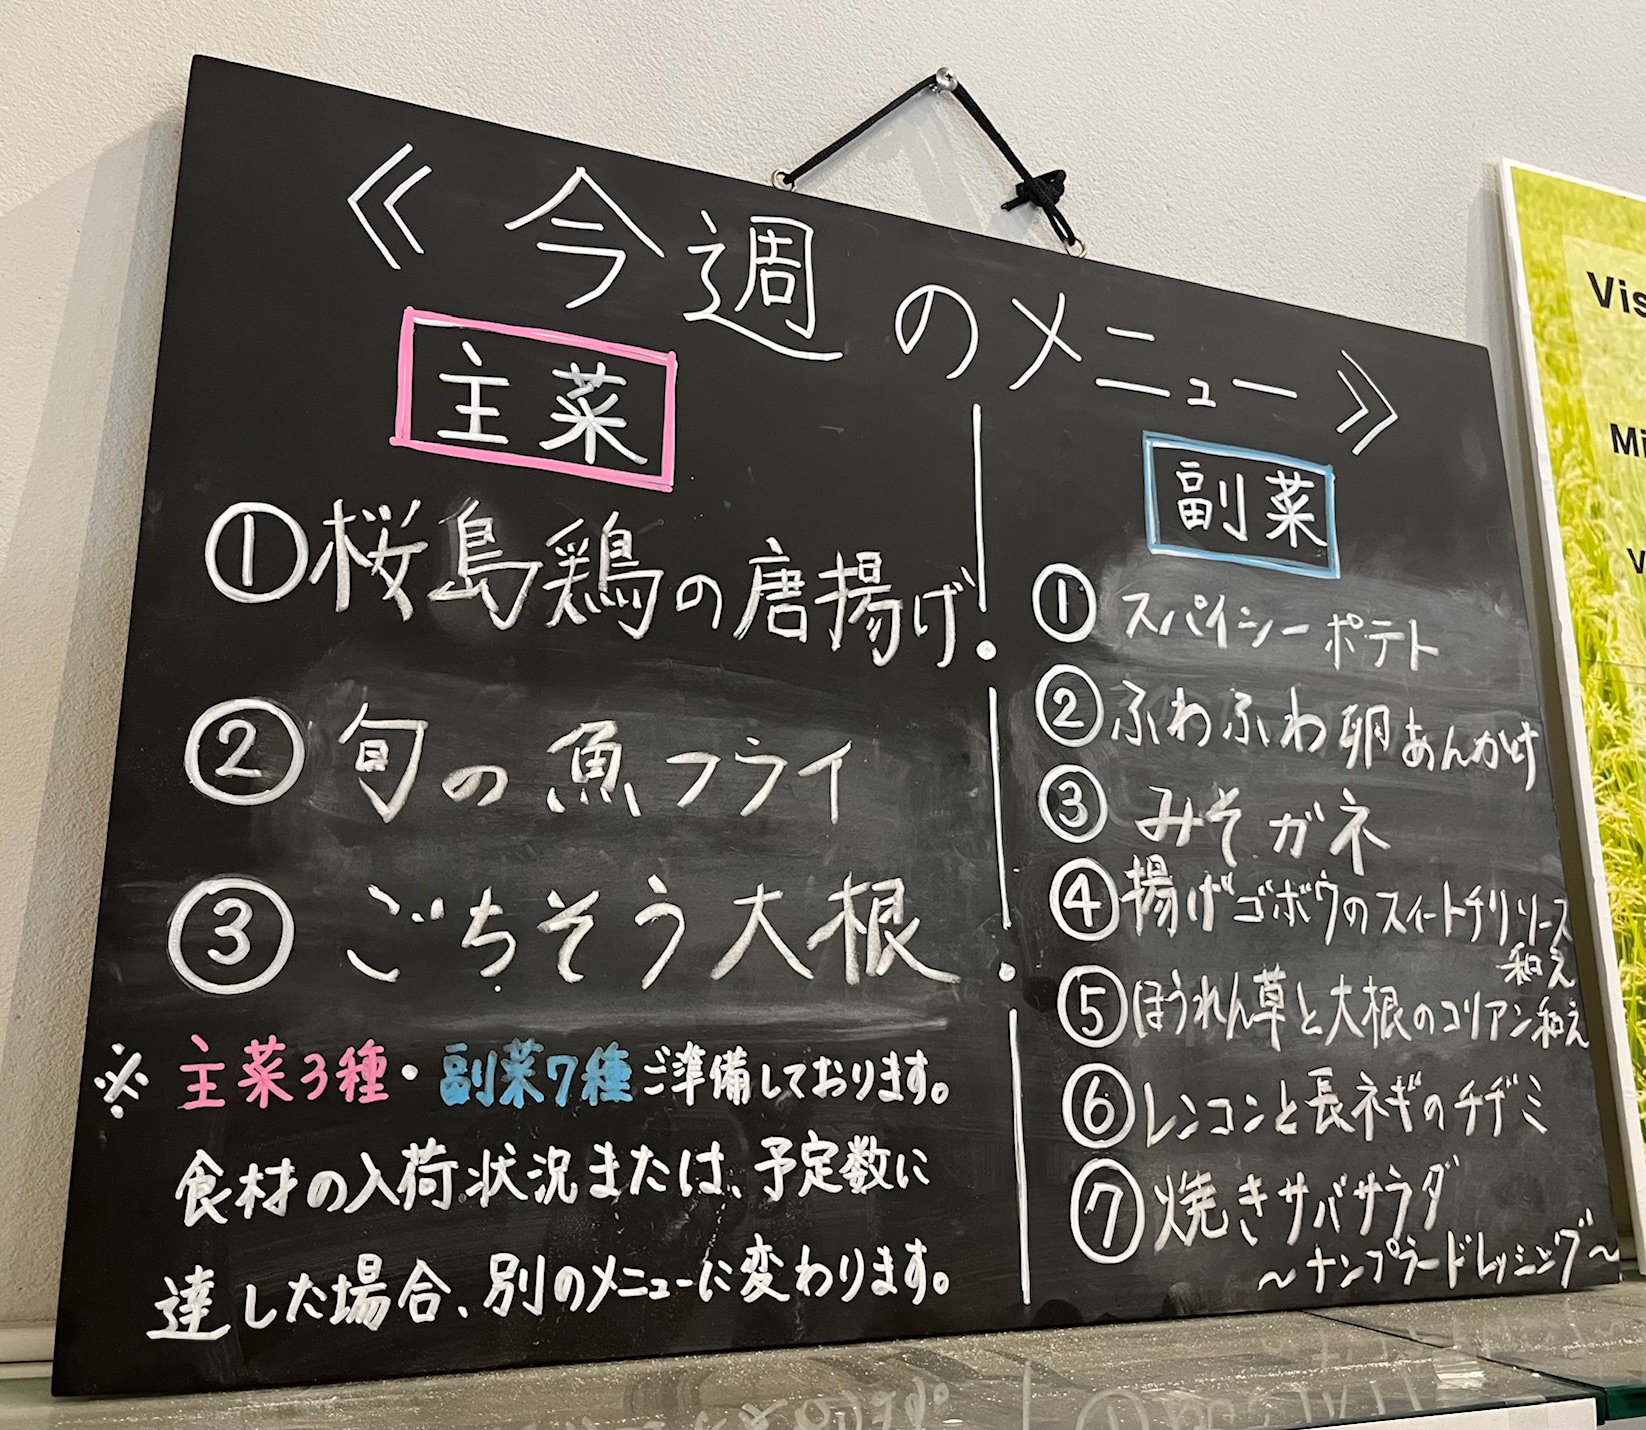 ≪今週のメニュー≫
主菜
①桜島鶏の唐揚げ
②旬の魚フライ
③ごちそう大根
※主菜3種・副菜7種ご準備しております。
食材の入荷状況または、予定数に
達した場合、別のメニューに変わります。
副菜
①スパイシーポテト
②ふわふわ卵あんかけ
③みそガネ
④揚げゴボウのスイートチリソース
和え
⑤ほうれん草と大根のコリアン和え
⑥レンコンと長ネギのチヂミ
⑦焼きサバサラダ
～ナンプラードレッシング～
Vis
Mi